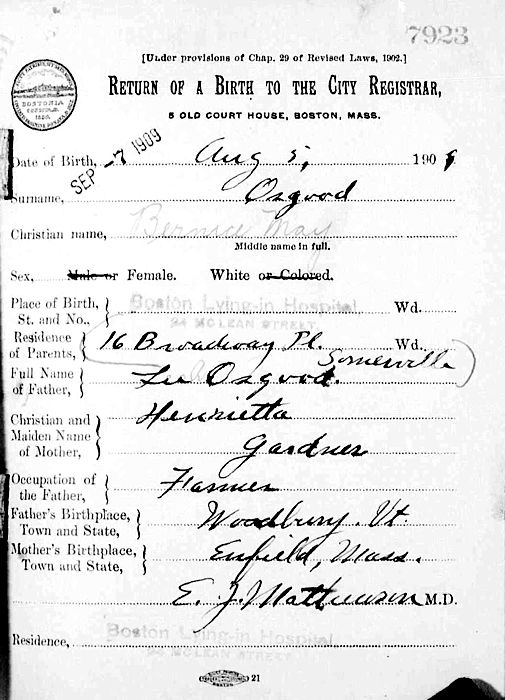 7923
[Under provisions of Chap. 29 of Revised Laws, 1902.]
RETURN OF A BIRTH TO THE CITY REGISTRAR,
5 OLD COURT HOUSE, BOSTON, MASS.
BOSTONIA
SEP -7 1909
Date of Birth, Aug 5, 1909
Surname, Osgood
Christian name, Bernice May
Middle name in full.
Sex, Male or Female. White or Colored.
Place of Birth, St. and No., Boston Lying-in Hospital Wd.
24 MCLEAN STREET
Residence of Parents, 16 Broadway Pl. Wd.
Somerville
Full Name of Father, Lee Osgood.
Christian and Maiden Name of Mother, Henrietta
Gardner
Occupation of the Father, Farmer
Father's Birthplace, Town and State, Woodbury. Vt
Mother's Birthplace, Town and State, Enfield, Mass.
E. J. Mathewson M.D.
Residence, Boston Lying-in Hospital
24 MCLEAN STREET
21